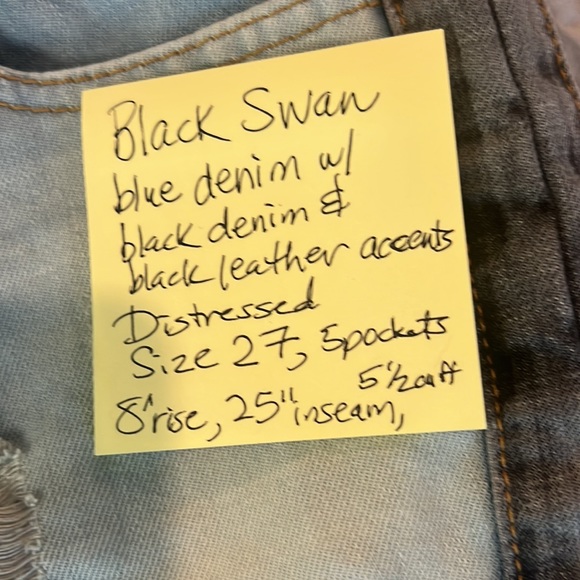 Black Swan
blue denim w/
black denim &
black leather accents
Distressed
Size 27, 5pockets
5 1/2 cuff
8" rise, 25" inseam,